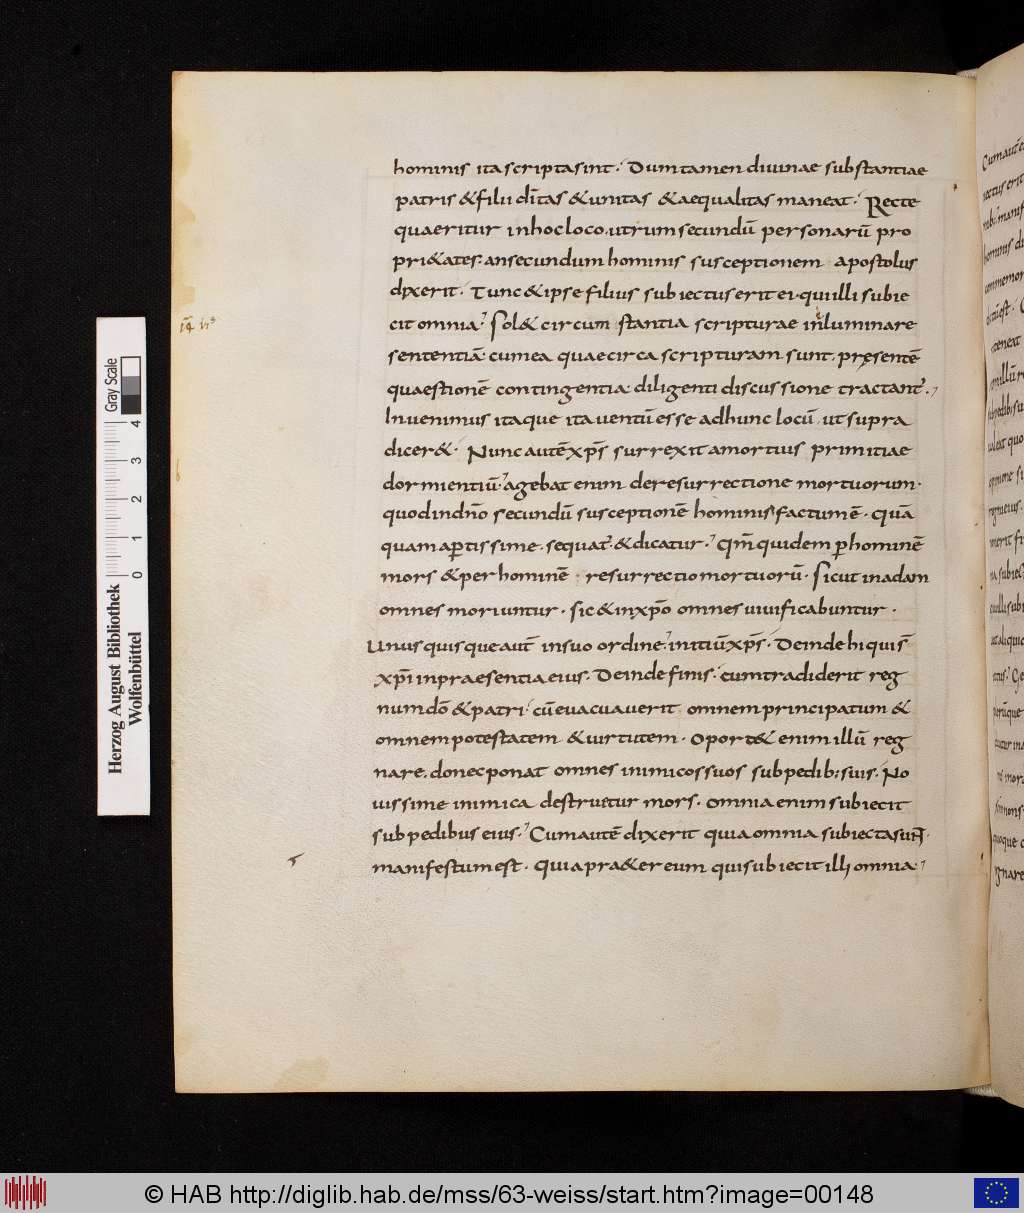 hominis ita scripta sint· Dum tamen divinae substantiae
patris & filii d̄itas & unitas & aequalitas maneat· Recte
quaeritur in hoc loco, utrum secundū personarū pro
pri&ates. an secundum hominis susceptionem apostolus
dixerit· Tunc & ipse filius subiectus erit ei· qui illi subie
cit omnia· Sol& circumstantia scripturae inluminare
sententiā· cum ea quae circa scripturam sunt. presentē
quaestionē contingentia· diligenti discussione tractant̄·
Invenimus itaque ita ventū esse ad hunc locū· ut supra
dicer&· Nunc autē xp̄s surrexit a mortuis primitiae
dormientiū· agebat enim de resurrectione mortuorum·
quod in dn̄o secundū susceptionē hominis factum ē· quā
quam aptissime· sequat̄· & dicatur· Qm̄ quidem p hominē
mors & per hominē· resurrectio mortuorū· Sicut in adam
omnes moriuntur· sic & in xp̄o omnes vivificabuntur·
Unusquisque aut̄ in suo ordine· initiū xp̄s· Deinde hi qui s̄
xp̄i in praesentia eius· Deinde finis· cum tradiderit reg
num dō & patri· cū evacuaverit omnem principatum &
omnem potestatem & virtutem· Oport& enim illū reg
nare, donec ponat omnes inimicos suos sub pedib; suis· No
vissime inimica destruetur mors· omnia enim subiecit
sub pedibus eius· Cum autē dixerit quia omnia subiecta sunt·
manifestum est· Quia pra&er eum qui subiecit illi omnia·
Herzog August Bibliothek
Wolfenbüttel
Gray Scale
0 1 2 3 4
© HAB http://diglib.hab.de/mss/63-weiss/start.htm?image=00148